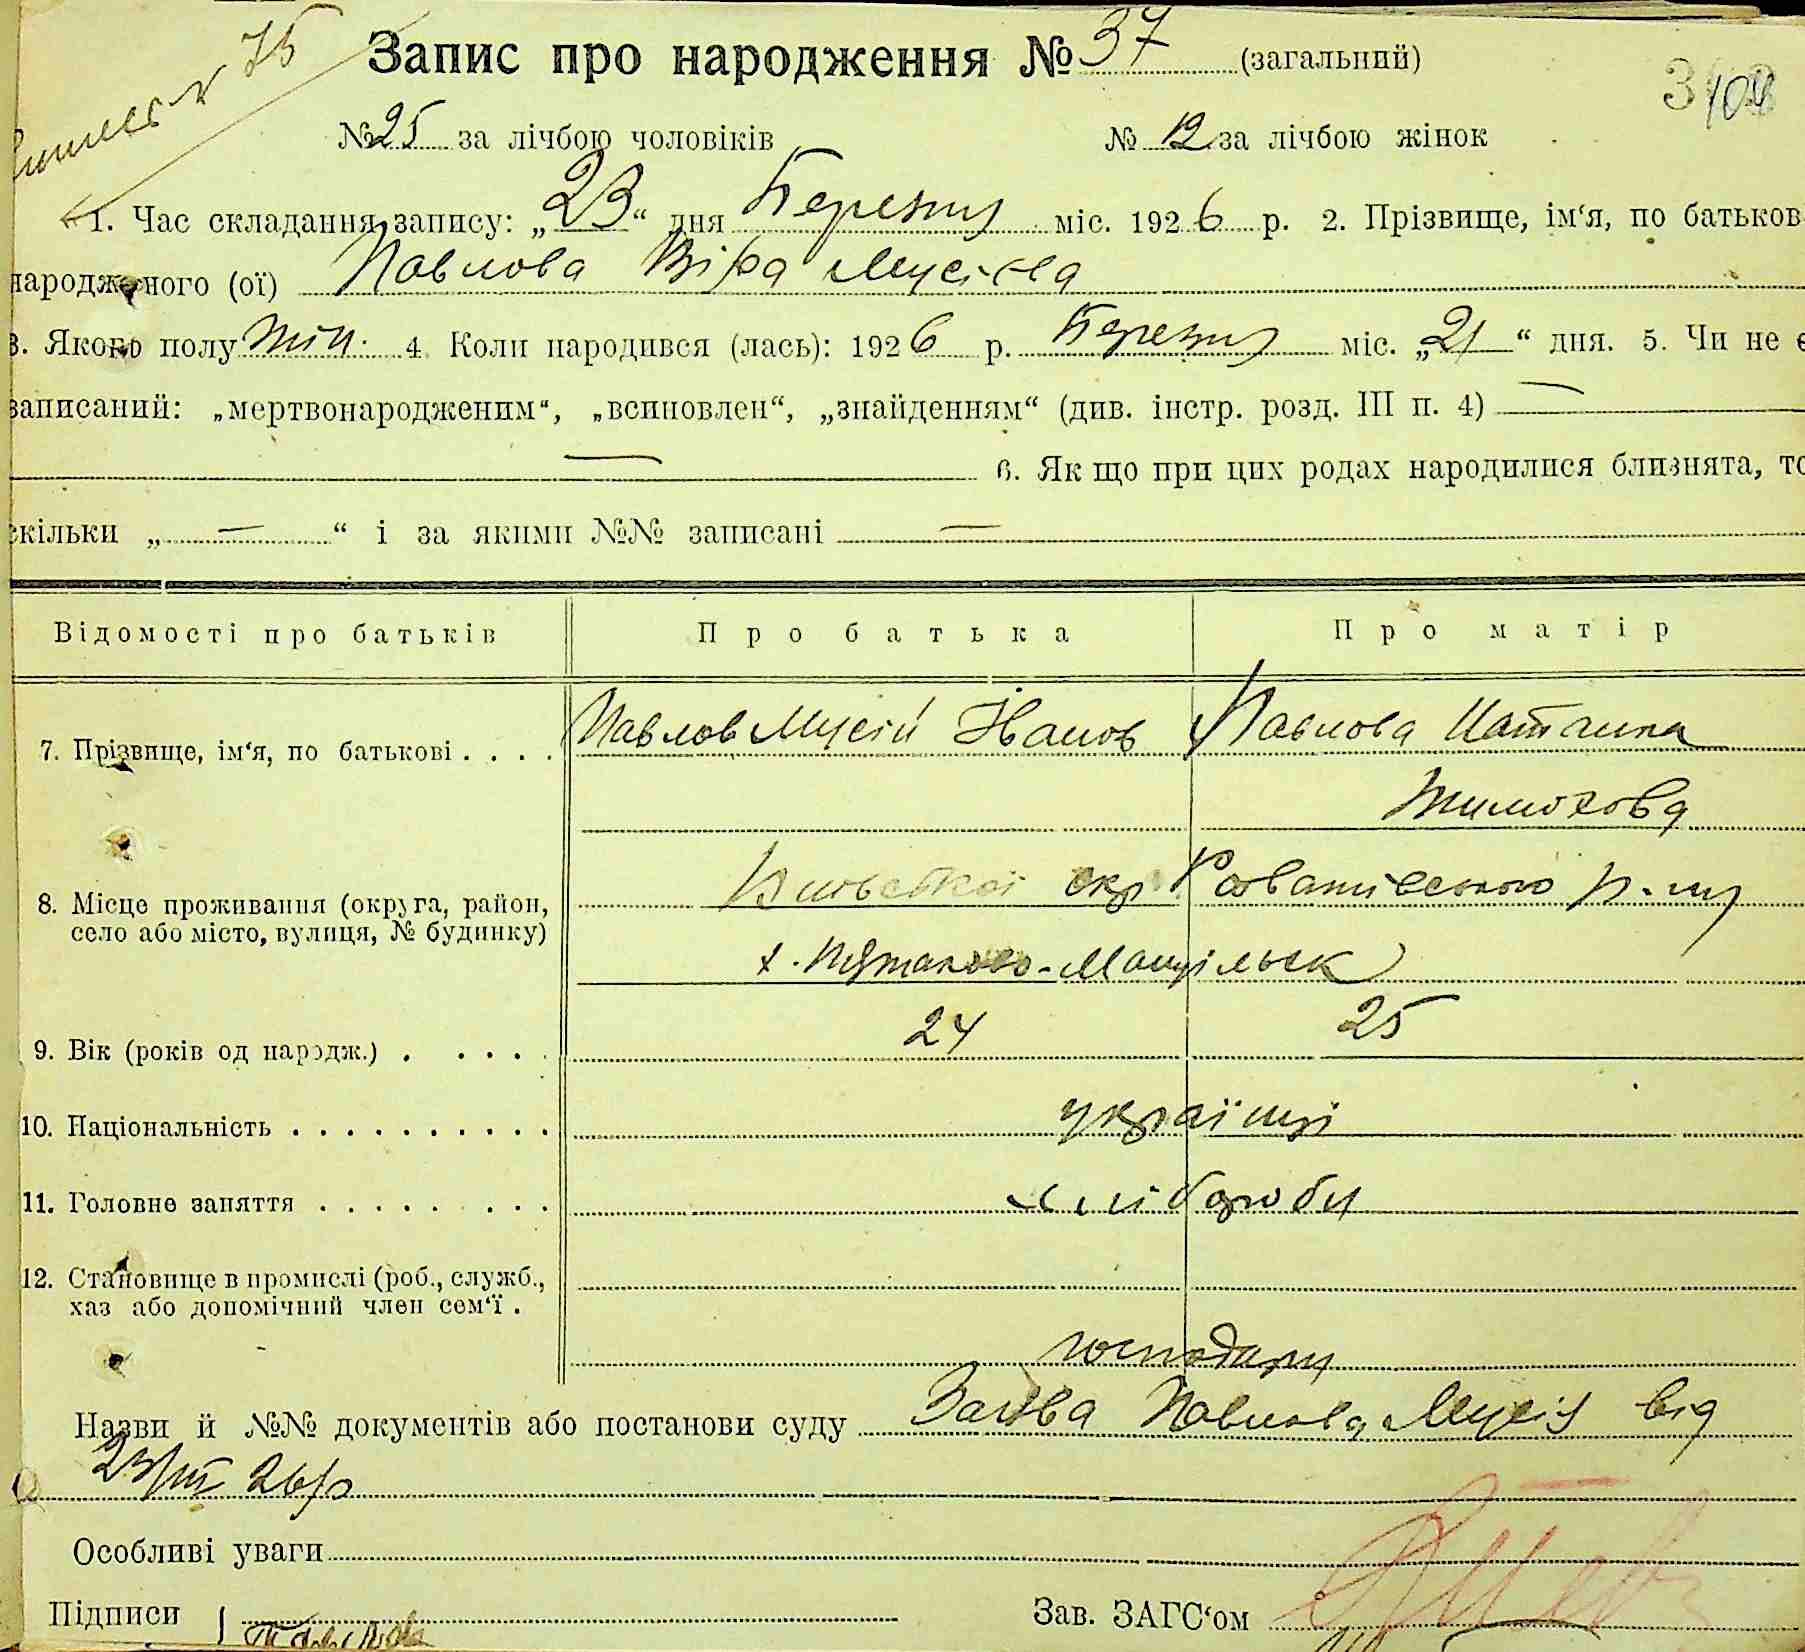 75
Запис про народження № 37 (загальний)
104
№ 25 за лічбою чоловіків № 12 за лічбою жінок
1. Час складання запису: „23“ дня Березня міс. 1926 р. 2. Прізвище, ім‘я, по батьков
народженого (ої) Павлова Віра Мусієва
3. Якого полу жін. 4. Коли народився (лась): 1926 р. Березня міс. „21“ дня. 5. Чи не є
записаний: „мертвонародженим“, „всиновлен“, „знайденням“ (див. інстр. розд. III п. 4) —
— 6. Як що при цих родах народилися близнята, то
скільки „ — “ і за якими №№ записані —
Відомості про батьків Про батька Про матір
7. Прізвище, ім‘я, по батькові . . . . Павлов Мусій Іванов Павлова Наталка
Тимохова
8. Місце проживання (округа, район, окр р-ну
село або місто, вулиця, № будинку) х.
9. Вік (років од народж.) . . . . . 24 25
10. Національність . . . . . . . . . . українці
11. Головне заняття . . . . . . . . . хлібороби
12. Становище в промислі (роб., служб.,
хаз або допомічний член сем‘ї .
господарі
Назви й №№ документів або постанови суду Заява Павлова Мусія від
23/III 26 р
Особливі уваги
Підписи Зав. ЗАГС‘ом